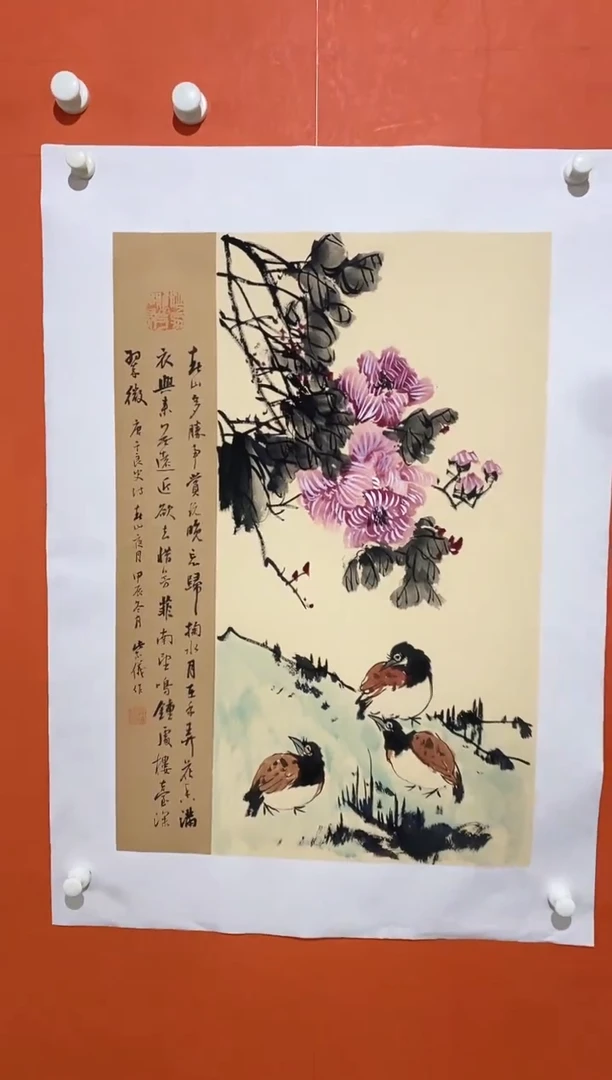 春山多勝事賞玩晚忘歸掬水月在手弄花香滿
衣興來无遠近欲去惜芳菲南望鳴鐘處樓臺深
翠微 唐于良史诗春山夜月甲辰冬月紫儀作